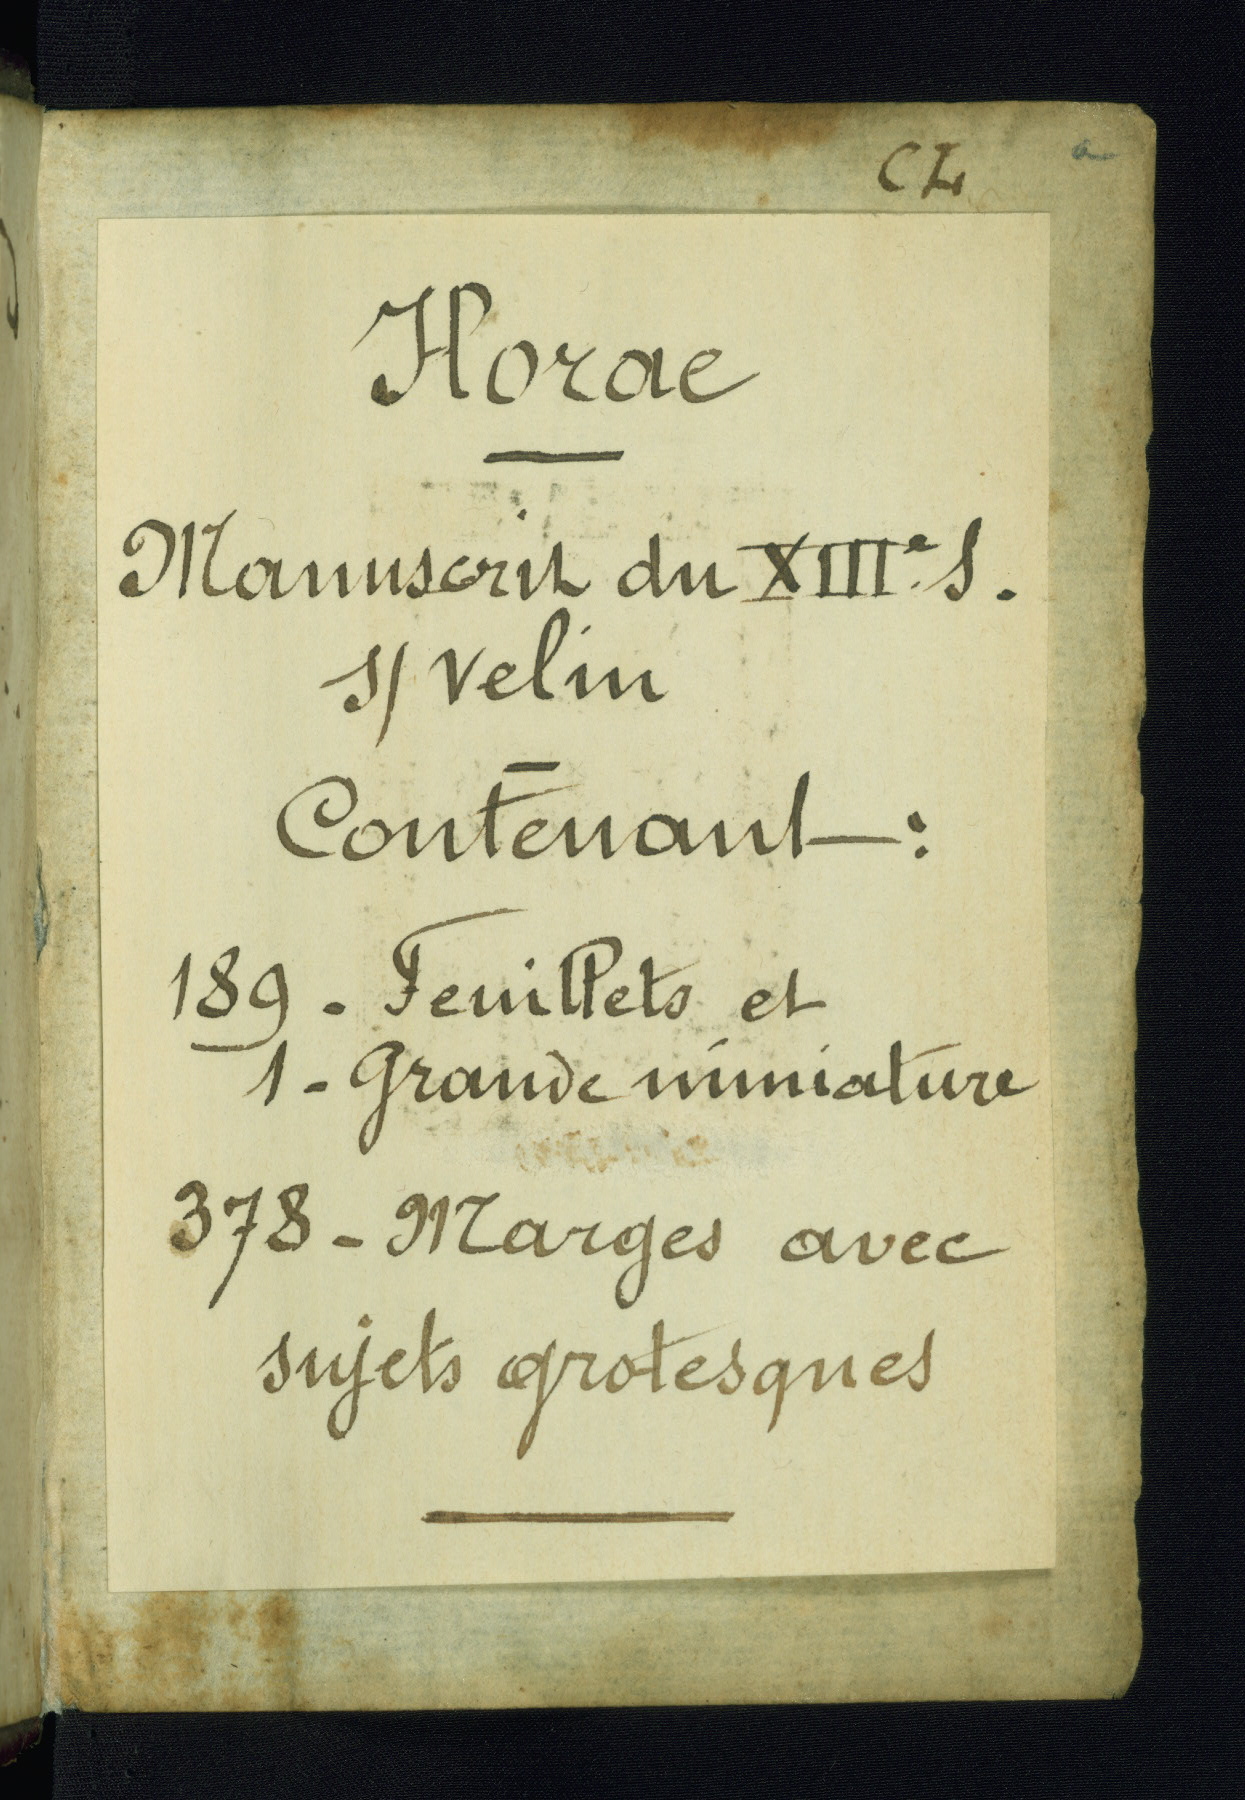 CL a
Horae
Manuscrit du XIIIe S.
s/ Velin
Contenant :
189 - Feuillets et
1 - Grande miniature
378 - Marges avec
sujets grotesques